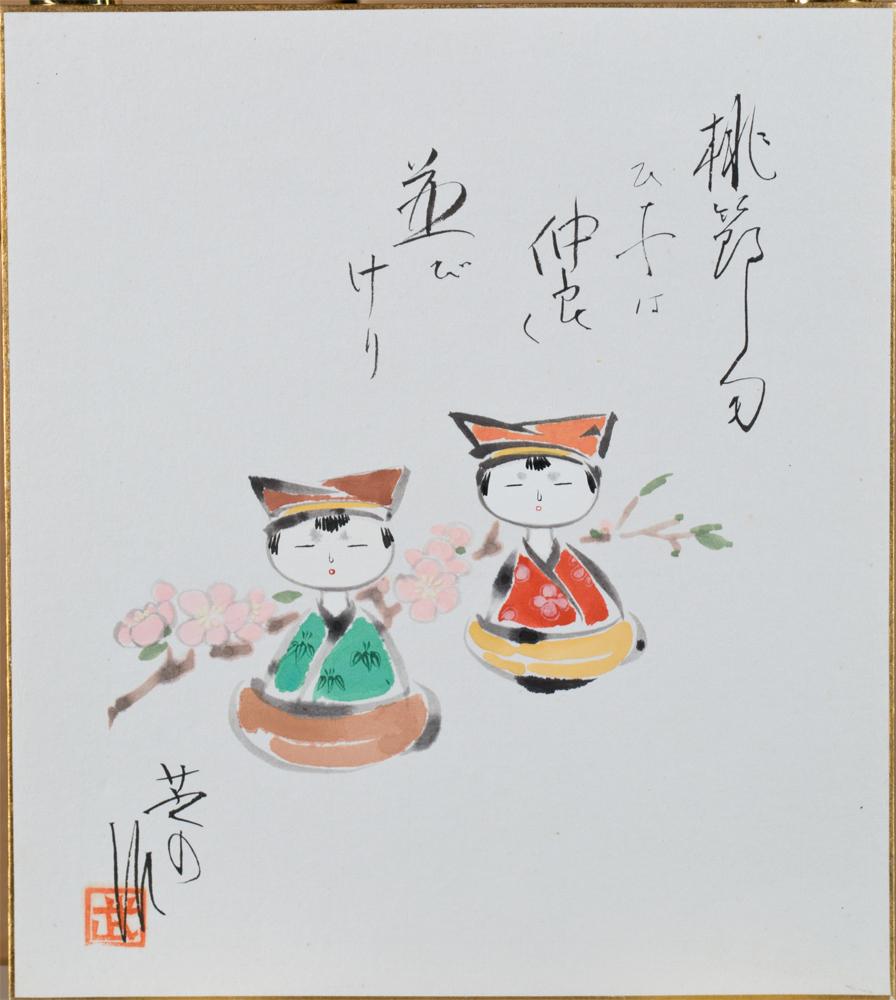 桃節句
ひなは
仲良く
並び
けり
芝の
武